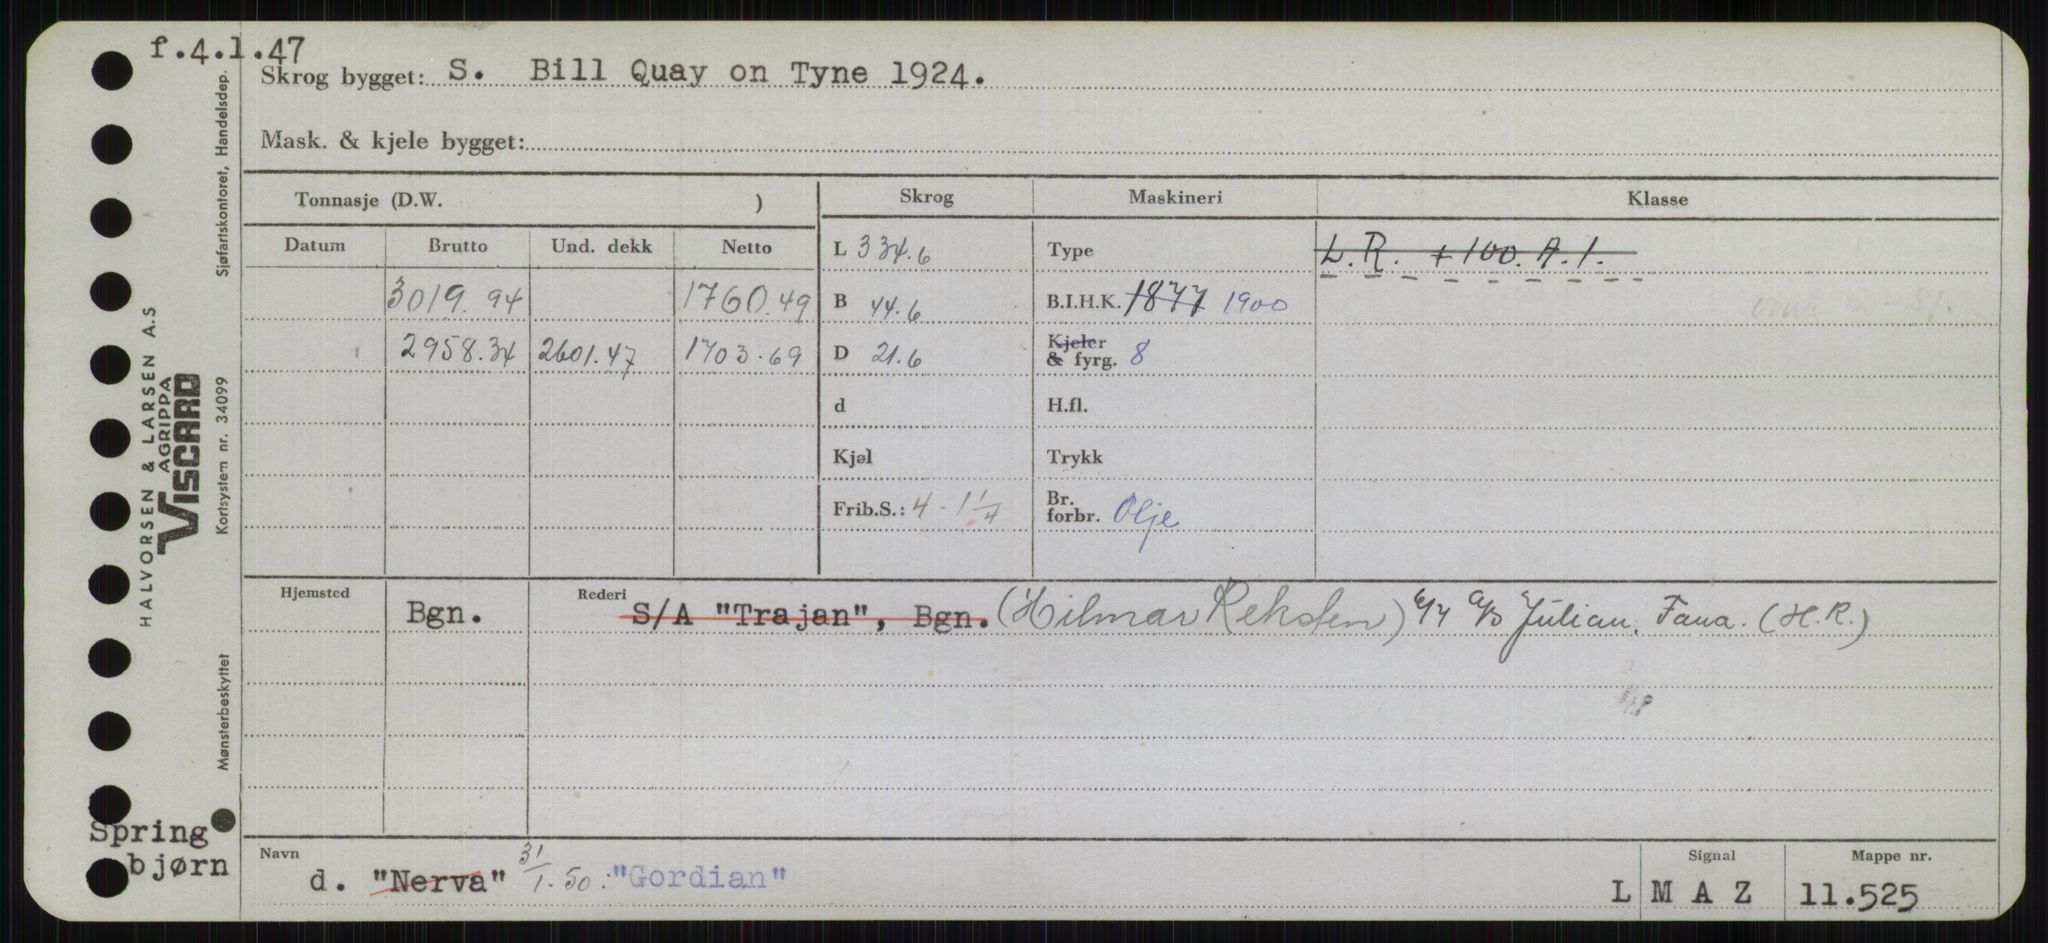 f.4.1.47
Skrog bygget: S. Bill Quay on Tyne 1924.
Mask. & kjele bygget:
Tonnasje (D.W. ) Skrog Maskineri Klasse
Datum Brutto Und. dekk Netto L 334.6 Type L.R. +100.A.1.
3019.94 1760.49 B 44.6 B.I.H.K. 1877 1900
2958.34 2601.47 1703.69 D 21.6 Kjeler & fyrg. 8
d H.fl.
Kjøl Trykk
Frib.S.: 4 - 1 1/4 Br. forbr. Olje
Hjemsted Bgn. Rederi S/A "Trajan", Bgn. (Hilmar Reksten) A/S Julian, Fana. (H.R.)
Navn d. "Nerva" 31/1.50: "Gordian" Signal L M A Z Mappe nr. 11.525
Spring
bjørn
HALVORSEN & LARSEN A.S
AGRIPPA
VISCARD
Mønsterbeskyttet Kortsystem nr. 34099 Sjøfartskontoret, Handelsdep.